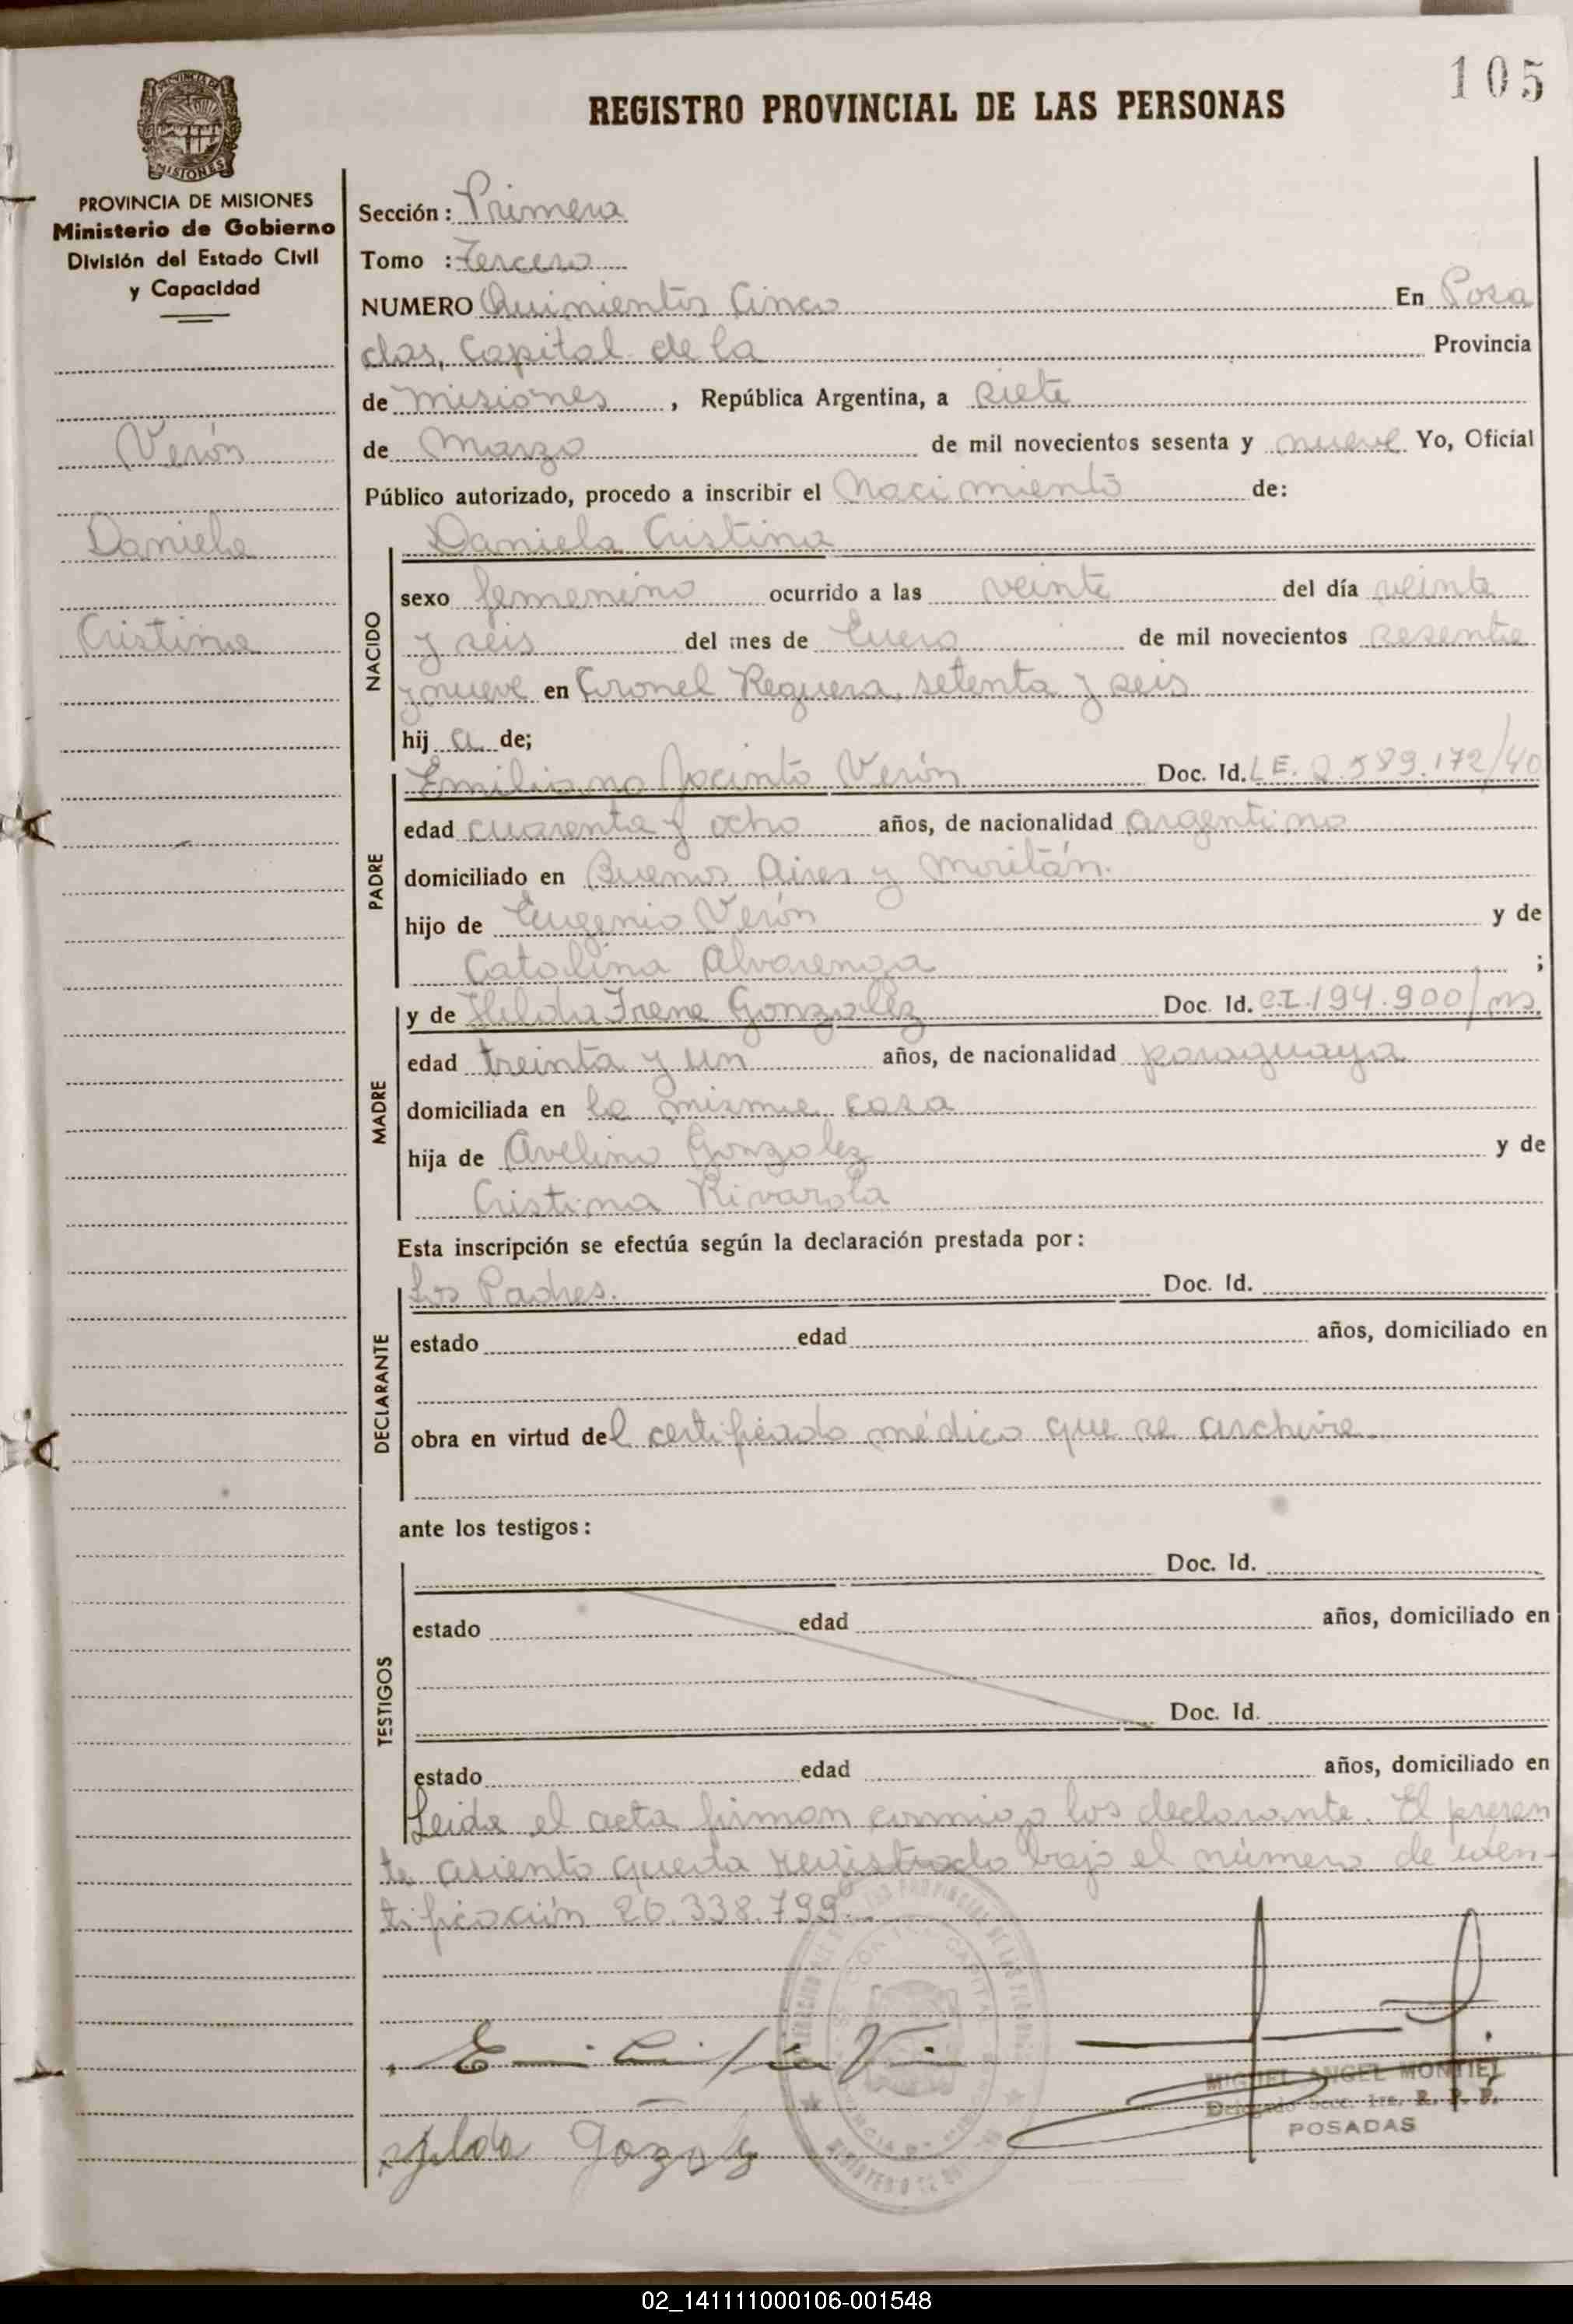 105
REGISTRO PROVINCIAL DE LAS PERSONAS
MISIONES
PROVINCIA DE MISIONES
Ministerio de Gobierno
División del Estado Civil
y Capacidad
Verón
Daniela
Cristina
Sección: Primera
Tomo : Tercero
NUMERO Quinientos Cinco En Posa
das, Capital de la Provincia
de Misiones, República Argentina, a siete
de Marzo de mil novecientos sesenta y nueve Yo, Oficial
Público autorizado, procedo a inscribir el Nacimiento de:
Daniela Cristina
NACIDO
sexo femenino ocurrido a las veinte del día veinte
y seis del mes de Enero de mil novecientos sesenta
y nueve en Coronel Reguera, setenta y seis
hij a de;
PADRE
Emiliano Jacinto Verón Doc. Id. L.E. 2.589.172/40
edad cuarenta y ocho años, de nacionalidad argentino
domiciliado en Buenos Aires y Moritán.
hijo de Eugenio Verón y de
Catalina Alvarenga ;
MADRE
y de Hilda Irene Gonzalez Doc. Id. C.I. 194.900/
edad treinta y un años, de nacionalidad paraguaya
domiciliada en la misma casa
hija de Avelino Gonzalez y de
Cristina Rivarola
Esta inscripción se efectúa según la declaración prestada por:
DECLARANTE
Los Padres. Doc. Id.
estado edad años, domiciliado en
obra en virtud del certificado médico que se archiva.
ante los testigos:
TESTIGOS
Doc. Id.
estado edad años, domiciliado en
Doc. Id.
estado edad años, domiciliado en
Leida el acta firman conmigo los declarante. El presen
te asiento queda registrado bajo el número de iden-
tificación 20.338.799.
MIGUEL ANGEL MONTIEL
Delegado Secc. 1ra. R. P. P.
POSADAS
02_141111000106-001548